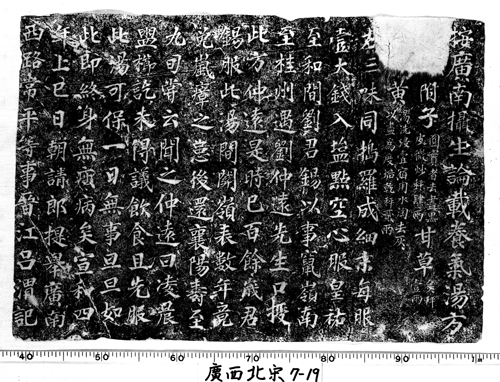 按廣南攝生論載養氣湯方
附子
甘草
黄
右三味同搗羅成細末每服
壹大錢入塩點空心服皇祐
至和間劉君錫以事竄嶺南
至桂州遇劉仲遠先生口授
此方仲遠是時已百餘歲君
錫服此湯間關嶺表數年竟
免嵐瘴之患後還襄陽壽至
九司嘗云聞之仲遠曰凌晨
盥櫛訖未得議飲食且先服
此湯可保一日無事旦旦如
此即終身無病矣宣和四
年上巳日朝請郎提舉廣南
西路常平等事晉江呂渭記
40 50 60 70 80 90
廣西北宋 7-19